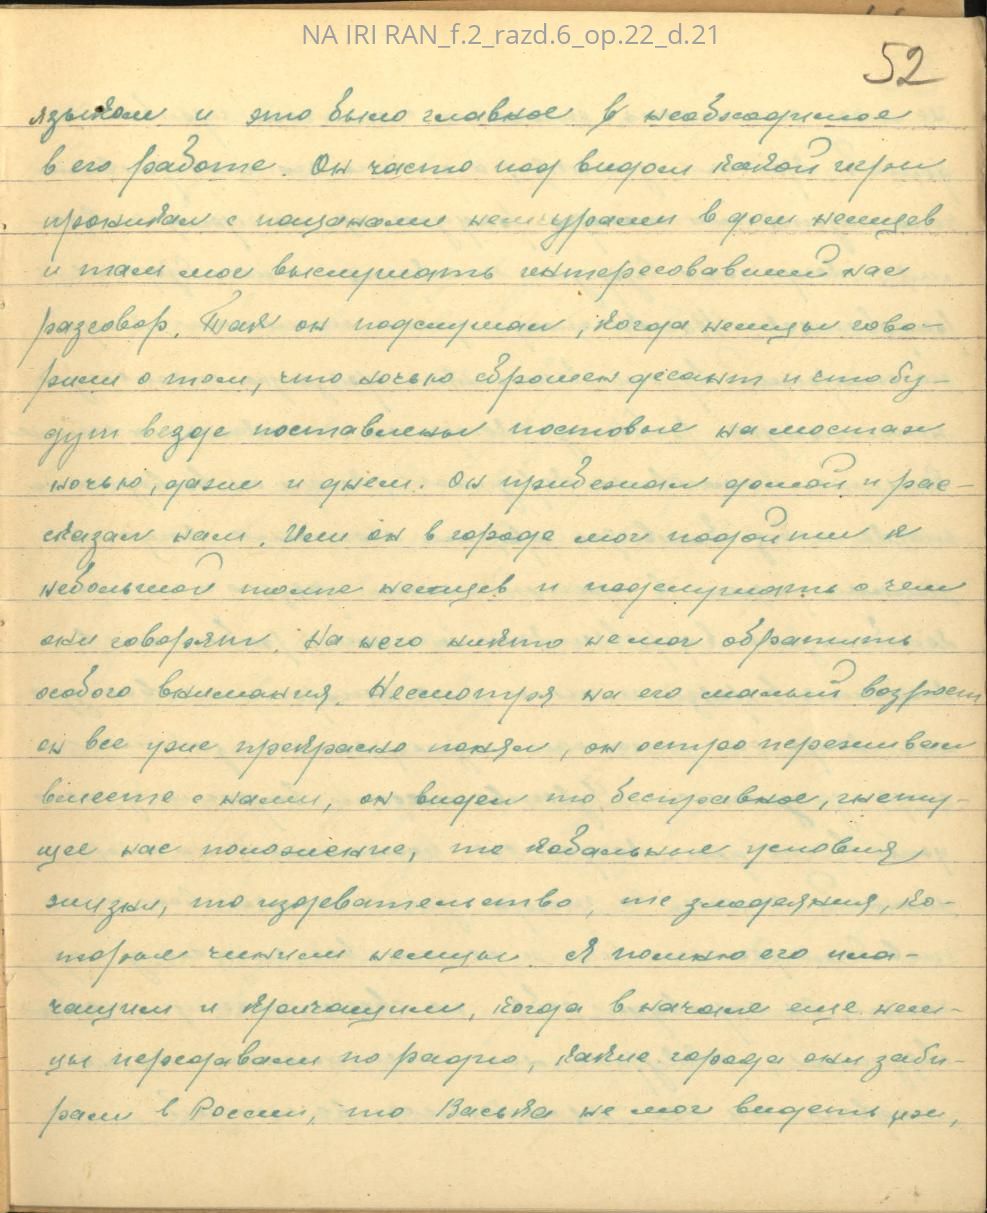 NA IRI RAN_f.2_razd.6_op.22_d.21
52
языком и это было главное и необходимое
в его работе. Он часто под видом какой игры
проникал с пацанами немчурами в дом немцев
и там мог выслушать интересовавший нас
разговор. Так он подслушал, когда немцы гово-
рили о том, что ночью сброшен десант и что бу-
дут везде поставлены постовые на мостах
ночью, даже и днем. Он прибежал домой и рас-
сказал нам. Или он в городе мог подойти к
небольшой толпе немцев и подслушать о чем
они говорят. На него никто не мог обратить
особого внимания. Несмотря на его малый возраст
он все уже прекрасно понял, он остро переживал
вместе с нами, он видел то бесправное, гнету-
щее нас положение, те кабальные условия
жизни, то издевательство, те злодеяния, ко-
торые чинили немцы. Я помню его пла-
чащим и кричащим, когда в начале еще нем-
цы передавали по радио, какие города они заби-
рали в России, то Васька не мог видеть их,